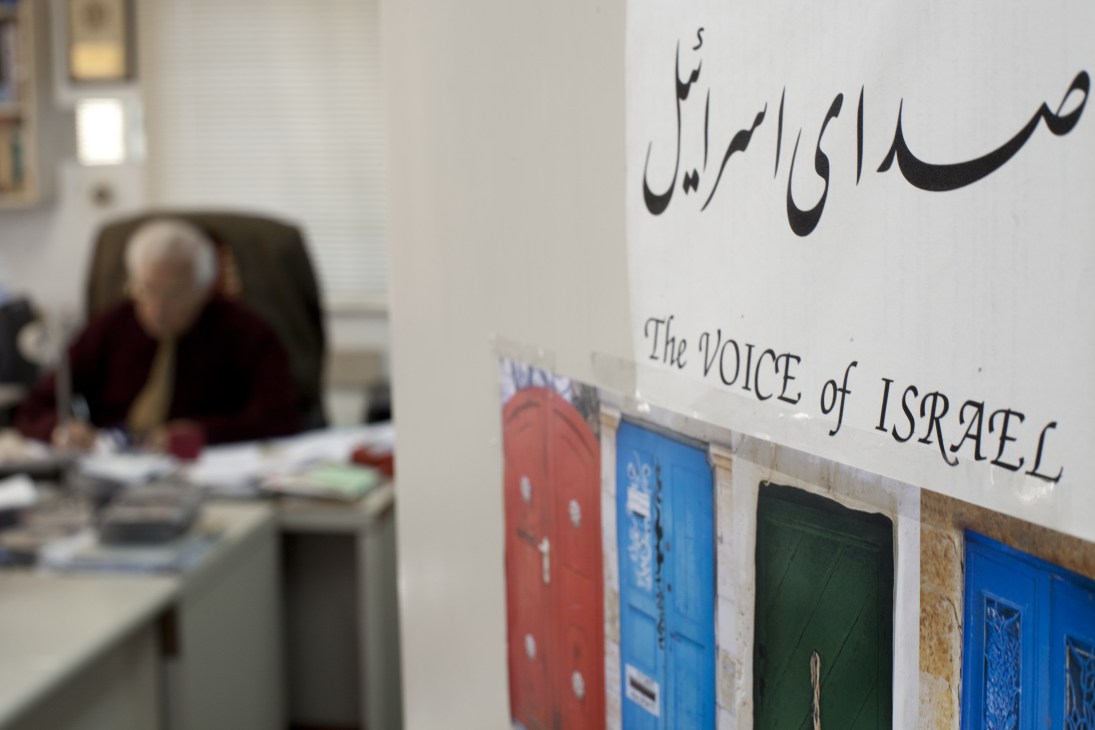 صدای اسرائیل
The VOICE of ISRAEL